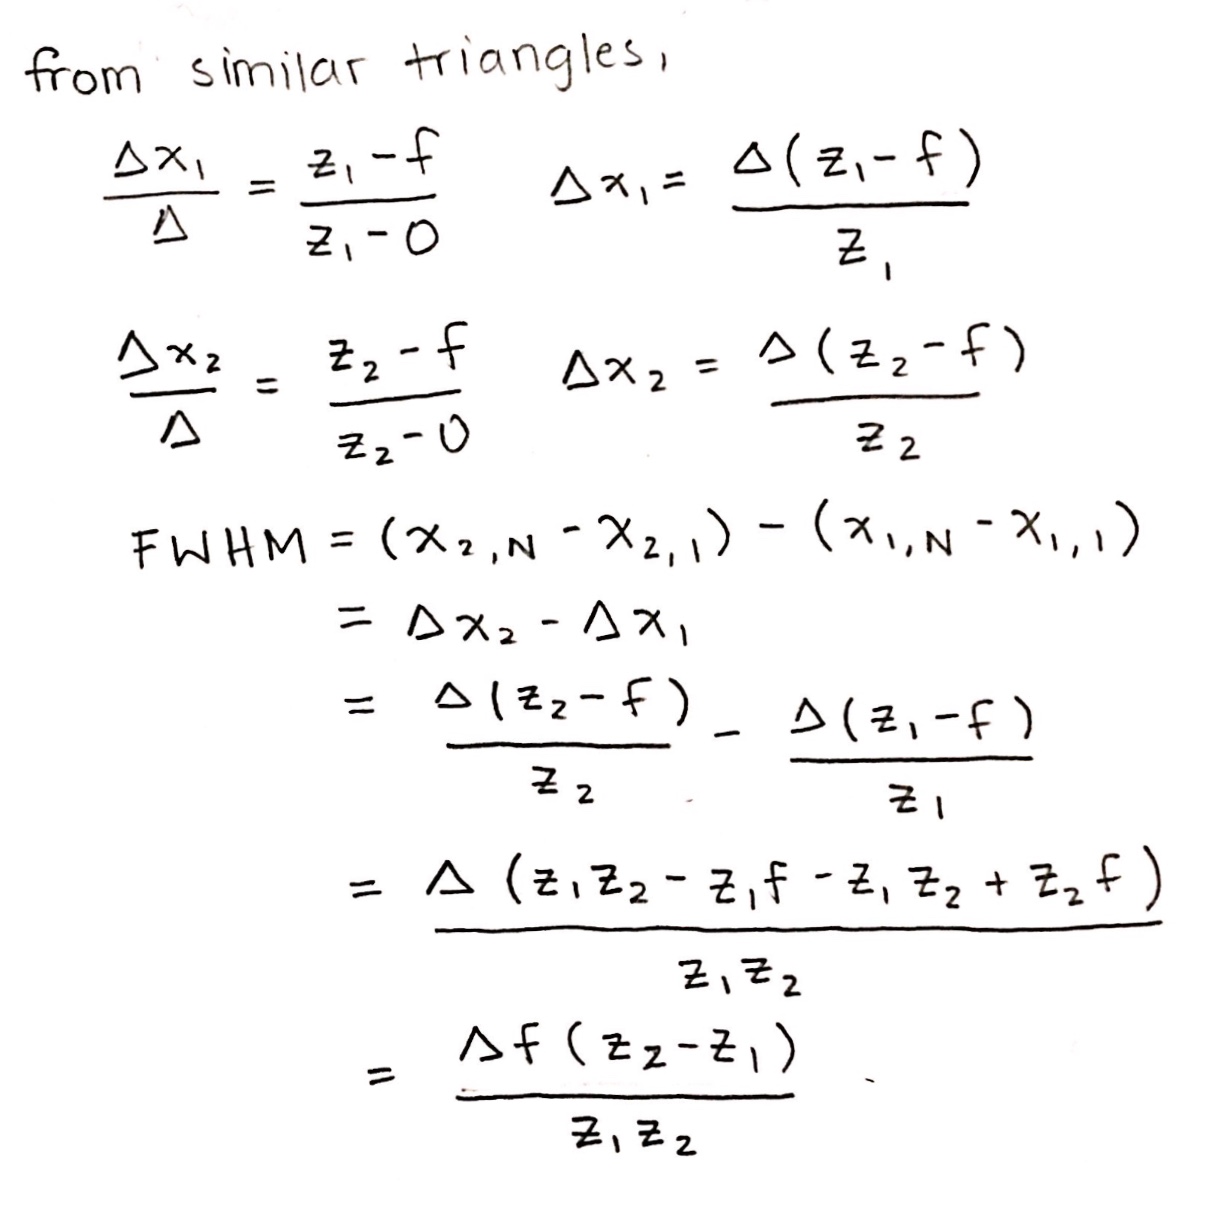 from similar triangles,
Δx₁/Δ = (z₁-f)/(z₁-0)   Δx₁ = Δ(z₁-f)/z₁
Δx₂/Δ = (z₂-f)/(z₂-0)   Δx₂ = Δ(z₂-f)/z₂
FWHM = (x₂,N - x₂,₁) - (x₁,N - x₁,₁)
= Δx₂ - Δx₁
= Δ(z₂-f)/z₂ - Δ(z₁-f)/z₁
= Δ(z₁z₂ - z₁f - z₁z₂ + z₂f)/z₁z₂
= Δf(z₂-z₁)/z₁z₂